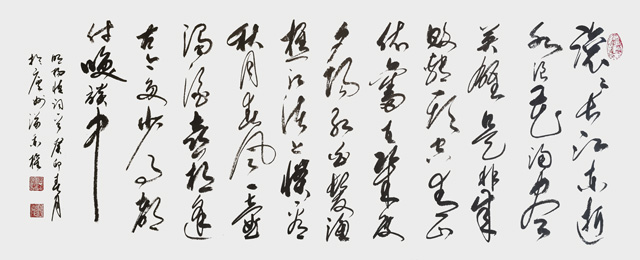 滚々长江东逝
水浪花淘尽
英雄是非成
败转头空青山
依旧在几度
夕阳红白发渔
樵江渚上惯看
秋月春风一壶
浊酒喜相逢
古今多少事都
付笑谈中
明杨慎词 癸卯春月
於广州